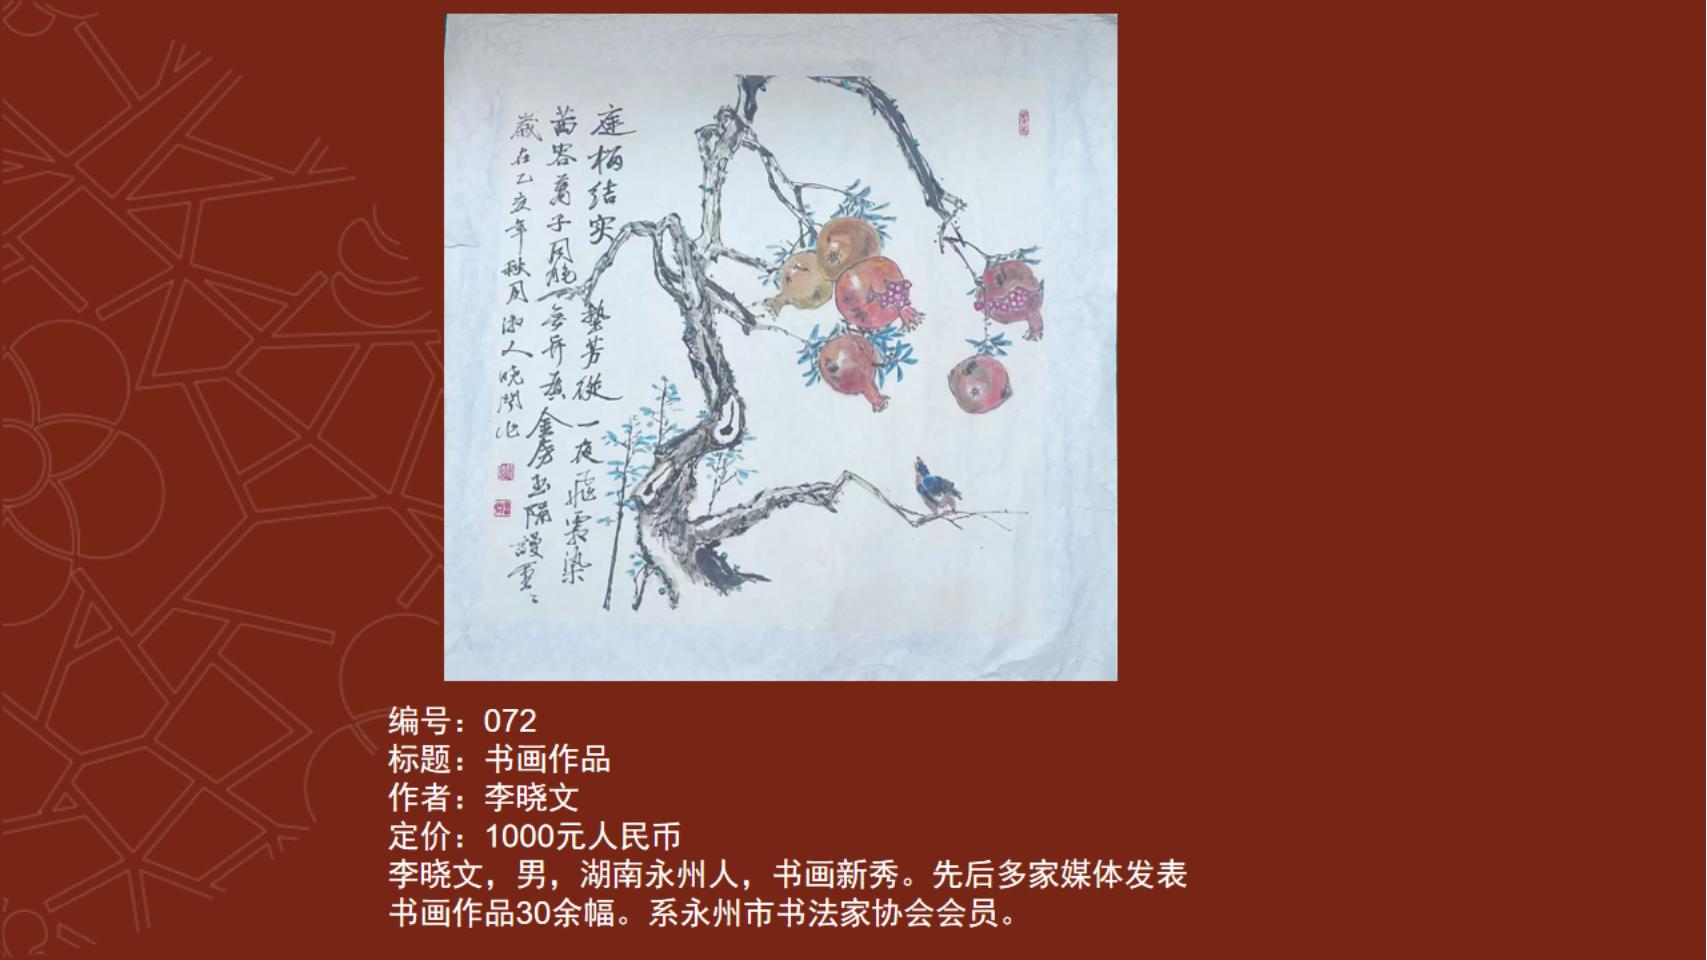 庭榴结实
垫芳丛
一夜飞霜染
茜容万子同胞
无异质金房玉隔谩重々
岁在乙亥年秋月湘人晓闻作
编号：072
标题：书画作品
作者：李晓文
定价：1000元人民币
李晓文，男，湖南永州人，书画新秀。先后多家媒体发表
书画作品30余幅。系永州市书法家协会会员。